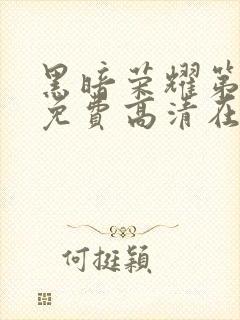 黑暗荣耀第
免费高清在
何挺颖